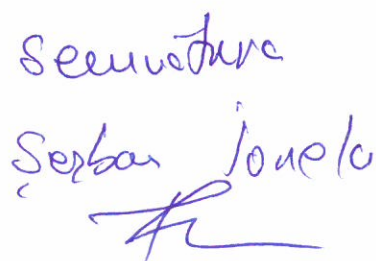 Semnatura
Șerban Ionela